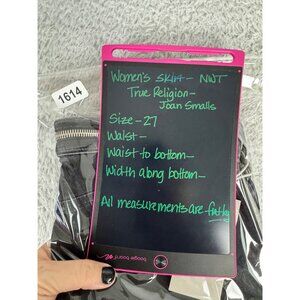 Women's skirt - NWT
True Religion-
Joan Smalls
1614
Size-27
Waist-
Waist to bottom-
Width along bottom-
All measurements are flat lay
boogie board